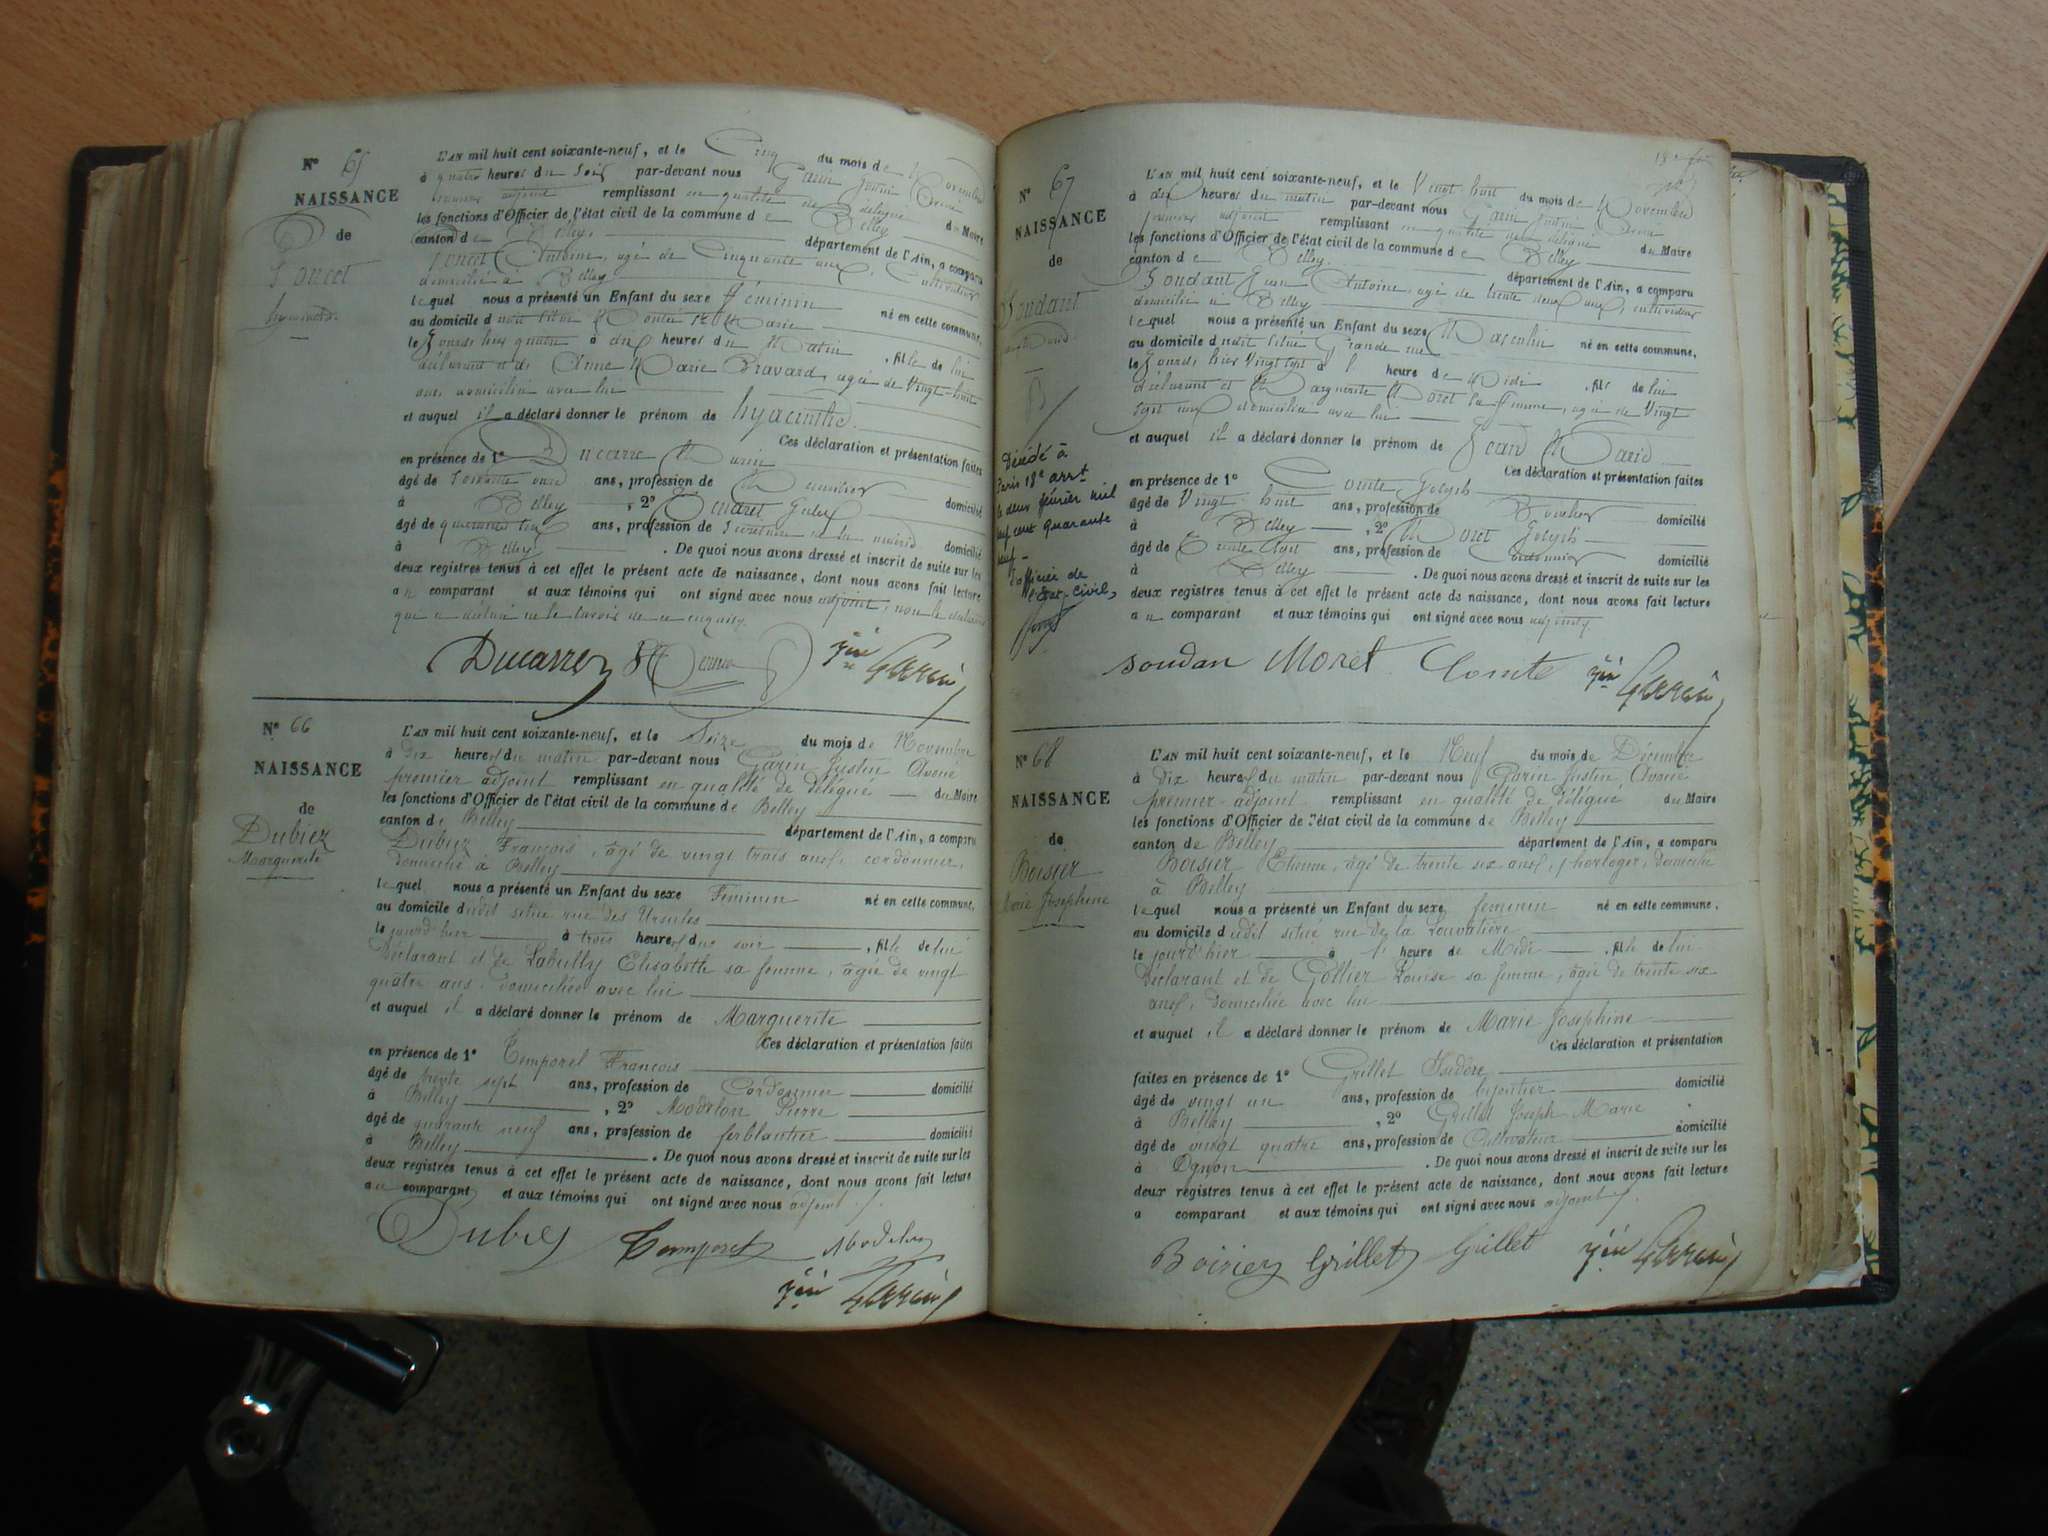 N° 65
NAISSANCE
de
Poncet
hyacinthe
L'AN mil huit cent soixante-neuf, et le Cinq du mois de Novembre
à quatre heures du soir par-devant nous Garin Justin Avoué
premier adjoint remplissant en qualité de délégué du Maire
les fonctions d'Officier de l'état civil de la commune de Belley
canton de Belley. département de l'Ain, a comparu
Poncet Antoine, âgé de Cinquante ans, cultivateur
domicilié à Belley
lequel nous a présenté un Enfant du sexe féminin né en cette commune,
au domicile
le Jourd'hier quatre à dix heures du Matin, fille de lui
déclarant et de Anne Marie Bravard, agée de Vingt-huit
ans, domiciliée avec lui
et auquel il a déclaré donner le prénom de hyacinthe.
Ces déclaration et présentation faites
en présence de 1° Ducarre Marin
âgé de soixante onze ans, profession de domicilié
à Belley, 2°
âgé de quarante ans, profession de Secrétaire de la mairie domicilié
à Belley. De quoi nous avons dressé et inscrit de suite sur les
deux registres tenus à cet effet le présent acte de naissance, dont nous avons fait lecture
au comparant et aux témoins qui ont signé avec nous adjoint, non le déclarant
qui a déclaré ne le savoir de ce enquis.
Ducarre Jin Garin
N° 66
NAISSANCE
de
Dubiez
Marguerite
L'AN mil huit cent soixante-neuf, et le Seize du mois de Novembre
à dix heures du matin par-devant nous Garin Justin Avoué
premier adjoint remplissant en qualité de délégué du Maire
les fonctions d'Officier de l'état civil de la commune de Belley
canton de Belley département de l'Ain, a comparu
Dubiez François, âgé de vingt trois ans, cordonnier,
domicilié à Belley
lequel nous a présenté un Enfant du sexe Féminin né en cette commune,
au domicile dudit situé rue des Ursules
le jourd'hier à trois heures du soir, fille de lui
Déclarant et de Labully Elisabeth sa femme, âgée de vingt
quatre ans, domiciliée avec lui
et auquel il a déclaré donner le prénom de Marguerite
Ces déclaration et présentation faites
en présence de 1° Temporel François
âgé de trente sept ans, profession de Cordonnier domicilié
à Belley, 2° Modelon Pierre
âgé de quarante neuf ans, profession de ferblantier domicilié
à Belley. De quoi nous avons dressé et inscrit de suite sur les
deux registres tenus à cet effet le présent acte de naissance, dont nous avons fait lecture
au comparant et aux témoins qui ont signé avec nous adjoint
Dubiez Temporel Modelon
Jin Garin
N° 67
NAISSANCE
de
Soudant
Jean Marie
Décédé à
Paris 18e arrt
le deux février mil
neuf cent quarante
neuf -
l'officier de
l'Etat-Civil,
L'AN mil huit cent soixante-neuf, et le Vingt huit du mois de Novembre
à dix heures du matin par-devant nous Garin Justin Avoué
premier adjoint remplissant en qualité de délégué du Maire
les fonctions d'Officier de l'état civil de la commune de Belley
canton de Belley. département de l'Ain, a comparu
Soudant Jean Antoine, agé de trente deux ans, cultivateur
domicilié à Belley
lequel nous a présenté un Enfant du sexe Masculin né en cette commune,
au domicile dudit situé Grande rue
le Jourd'hier Vingt sept à 1 heure de Midi, fils de lui
déclarant et Marguerite Moret sa femme, agée de Vingt
sept ans domiciliée avec lui
et auquel il a déclaré donner le prénom de Jean Marie
Ces déclaration et présentation faites
en présence de 1° Comte Joseph
âgé de Vingt huit ans, profession de Boucher domicilié
à Belley, 2° Moret Joseph
âgé de Trente sept ans, profession de cordonnier domicilié
à Belley. De quoi nous avons dressé et inscrit de suite sur les
deux registres tenus à cet effet le présent acte de naissance, dont nous avons fait lecture
au comparant et aux témoins qui ont signé avec nous adjoint
soudan Moret Comte Jin Garin
N° 68
NAISSANCE
de
Boisier
Marie Josephine
L'AN mil huit cent soixante-neuf, et le Neuf du mois de Décembre
à Dix heures du matin par-devant nous Garin Justin, Avoué
premier adjoint remplissant en qualité de délégué du Maire
les fonctions d'Officier de l'état civil de la commune de Belley
canton de Belley département de l'Ain, a comparu
Boisier Etienne, âgé de trente six ans, horloger, domicilié
à Belley
lequel nous a présenté un Enfant du sexe féminin né en cette commune,
au domicile dudit situé rue de la Louvatière
le jourd'hier à 1 heure de Midi, fille de lui
Déclarant et de Gollier Louise sa femme, âgée de trente six
ans, domiciliée avec lui
et auquel il a déclaré donner le prénom de Marie Josephine
Ces déclaration et présentation
faites en présence de 1° Grillet Isidore
âgé de vingt un ans, profession de bijoutier domicilié
à Belley, 2° Grillet Joseph Marie
âgé de vingt quatre ans, profession de Cultivateur domicilié
à Ognon. De quoi nous avons dressé et inscrit de suite sur les
deux registres tenus à cet effet le présent acte de naissance, dont nous avons fait lecture
a comparant et aux témoins qui ont signé avec nous adjoint
Boisier Grillet Grillet Jin Garin